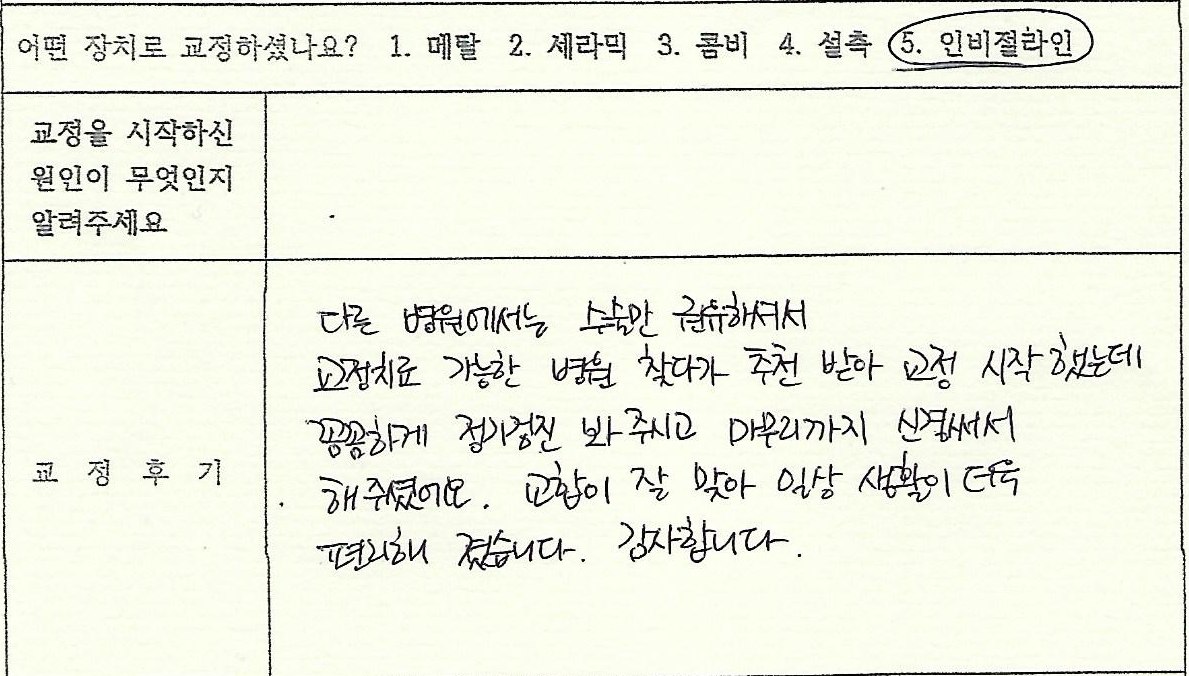 어떤 장치로 교정하셨나요? 1. 메탈 2. 세라믹 3. 콤비 4. 설측 5. 인비절라인
교정을 시작하신
원인이 무엇인지
알려주세요
교 정 후 기
다른 병원에서는 수술만 권유하셔서
교정치료 가능한 병원 찾다가 추천 받아 교정 시작했는데
꼼꼼하게 정기검진 봐주시고 마무리까지 신경써서
해주셨어요. 교합이 잘 맞아 일상 생활이 더욱
편리해 졌습니다. 감사합니다.